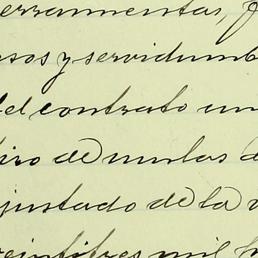 herramientas, f
esos y servidumb
del contrato un
tiro de mulas d
ajustado de la v
veintitres mil h